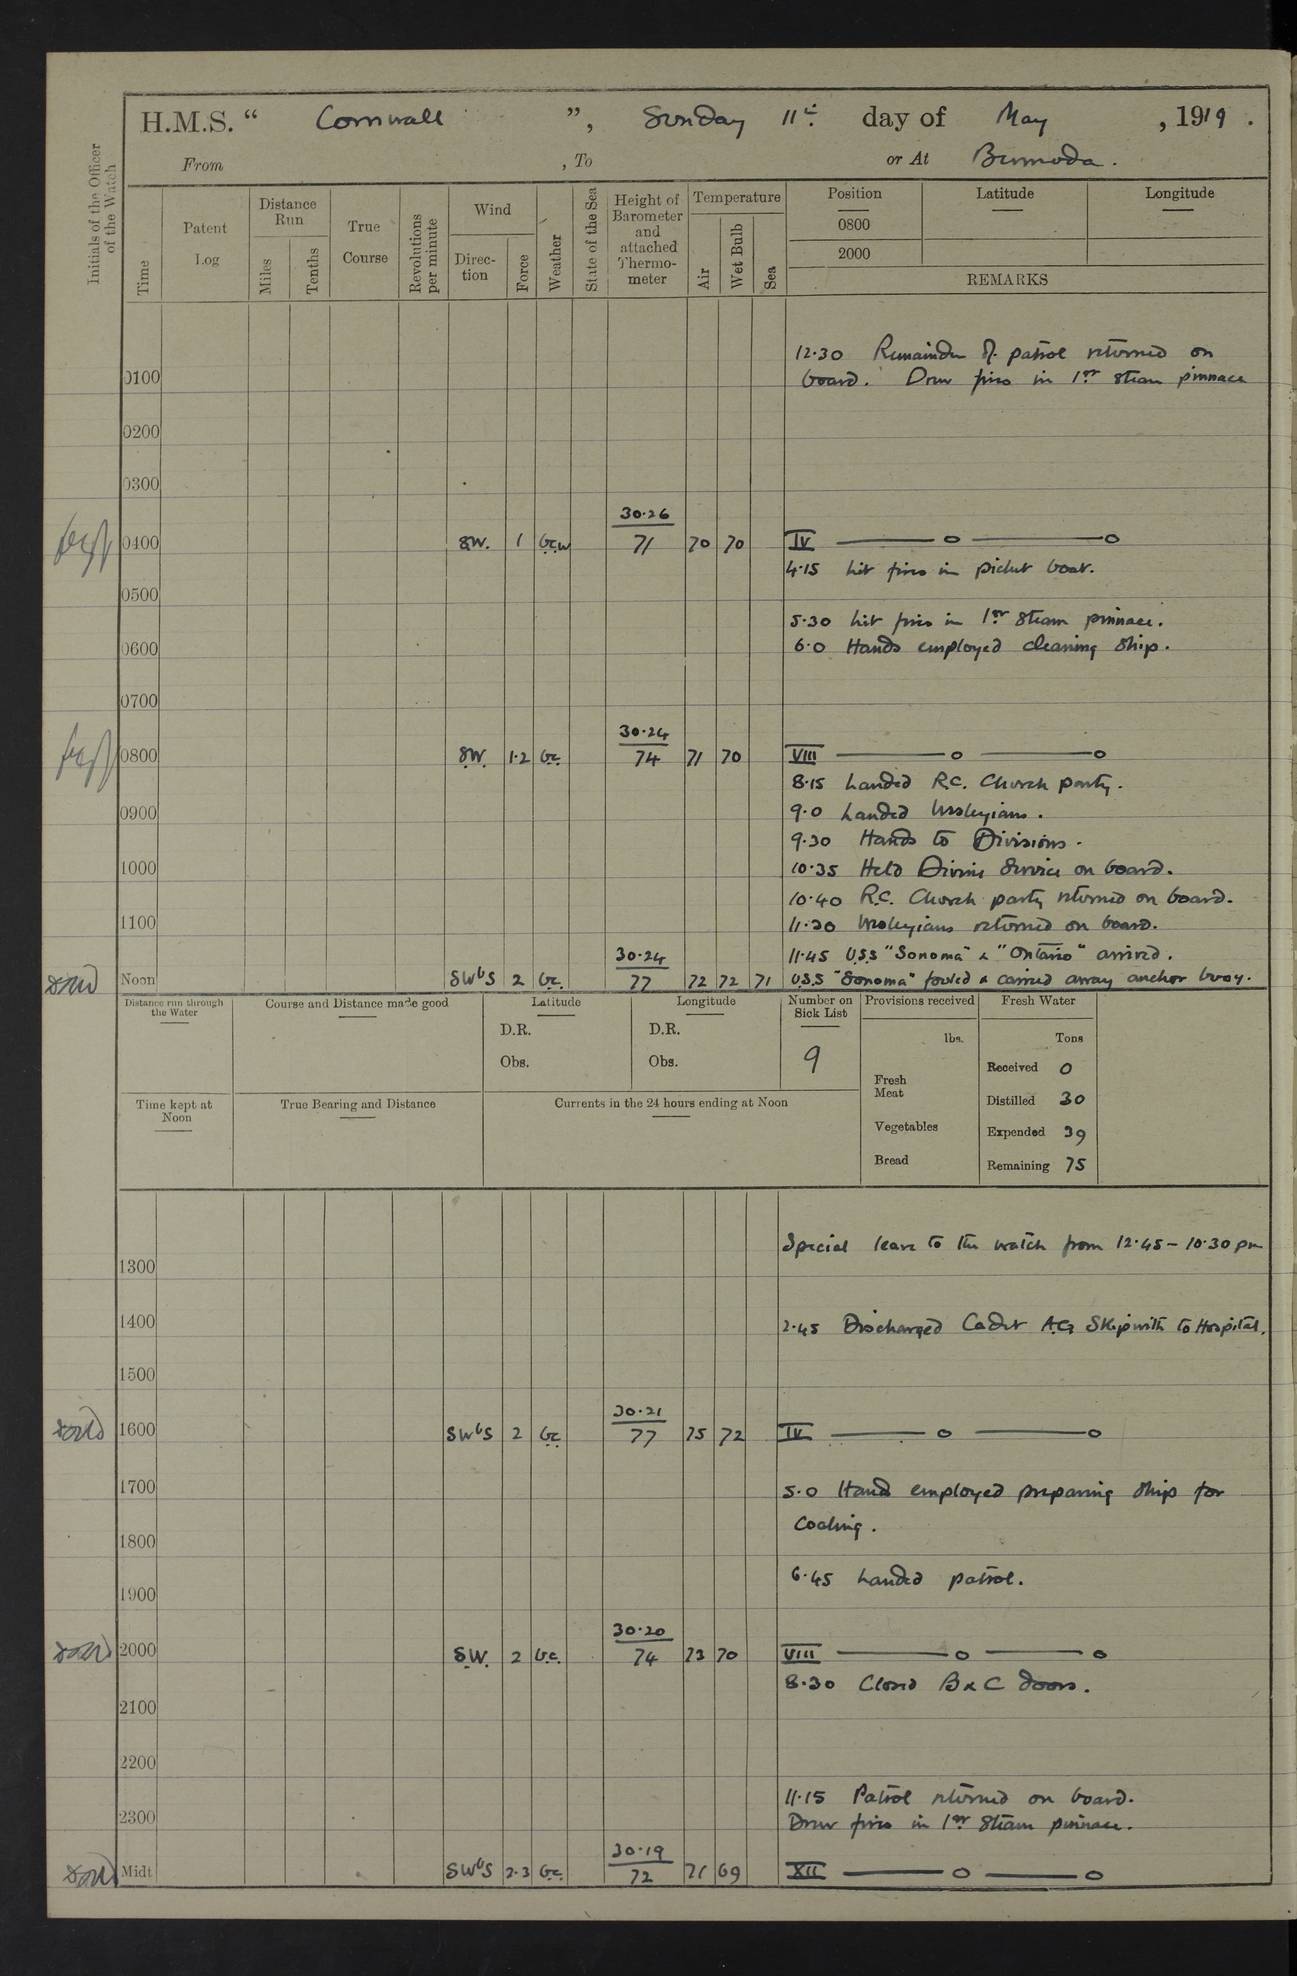 H.M.S. “ Cornwall ”, Sunday 11th day of May , 1919 .
From , To or At Bermuda .
Initials of the Officer of the Watch
Time
Patent Log
Distance Run
Miles
Tenths
True Course
Revolutions per minute
Wind
Direction
Force
Weather
State of the Sea
Height of Barometer and attached Thermometer
Temperature
Air
Wet Bulb
Sea
Position Latitude Longitude
0800
2000
REMARKS
12.30 Remainder of patrol returned on
0100 board. Drew fires in 1st steam pinnace
0200
0300
30.26
0400 SW. 1 bcw 71 70 70 IV
4.15 Lit fires in picket boat.
0500
5.30 Lit fires in 1st steam pinnace.
0600 6.0 Hands employed cleaning ship.
0700
30.24
0800 SW. 1.2 bc. 74 71 70 VIII
8.15 Landed R.C. Church party.
0900 9.0 Landed Wesleyians.
9.30 Hands to Divisions.
1000 10.35 Held Divine Service on board.
10.40 R.C. Church party returned on board.
1100 11.20 Wesleyians returned on board.
30.24 11.45 U.S.S "Sonoma" & "Ontario" arrived.
Noon SWbS 2 bc. 77 72 72 71 U.S.S "Sonoma" fouled & carried away anchor buoy.
Distance run through the Water
Course and Distance made good
Latitude
D.R.
Obs.
Longitude
D.R.
Obs.
Number on Sick List
9
Provisions received
lbs.
Fresh Meat
Vegetables
Bread
Fresh Water
Tons
Received 0
Distilled 30
Expended 39
Remaining 75
Time kept at Noon
True Bearing and Distance
Currents in the 24 hours ending at Noon
Special leave to the watch from 12.45 - 10.30 pm
1300
1400 2.45 Discharged Cadet A.G. Skipwith to Hospital.
1500
30.21
1600 SWbS 2 bc 77 75 72 IV
1700 5.0 Hands employed preparing ship for
coaling.
1800
6.45 Landed patrol.
1900
30.20
2000 SW. 2 b.c. 74 73 70 VIII
8.30 Closed B & C doors.
2100
2200
11.15 Patrol returned on board.
2300 Drew fires in 1st steam pinnace.
30.19
Midt SWbS 2.3 bc. 72 71 69 XII